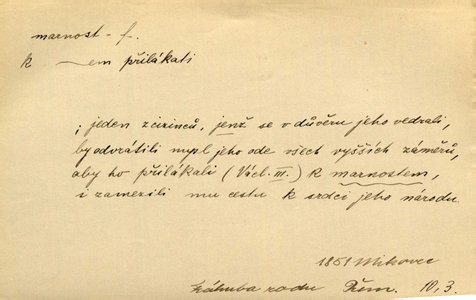 marnost - f.
k ~em přilákati
; jeden z cizinců, jenž se v důvěru jeho vedrali,
by odvrátili mysl jeho ode všech vyšších záměrů,
aby ho přilákali (Václ. III.) k marnostem,
i zamezili mu cestu k srdci jeho národu.
1851 Mikovec
Záhuba rodu Přem. 10, 3.